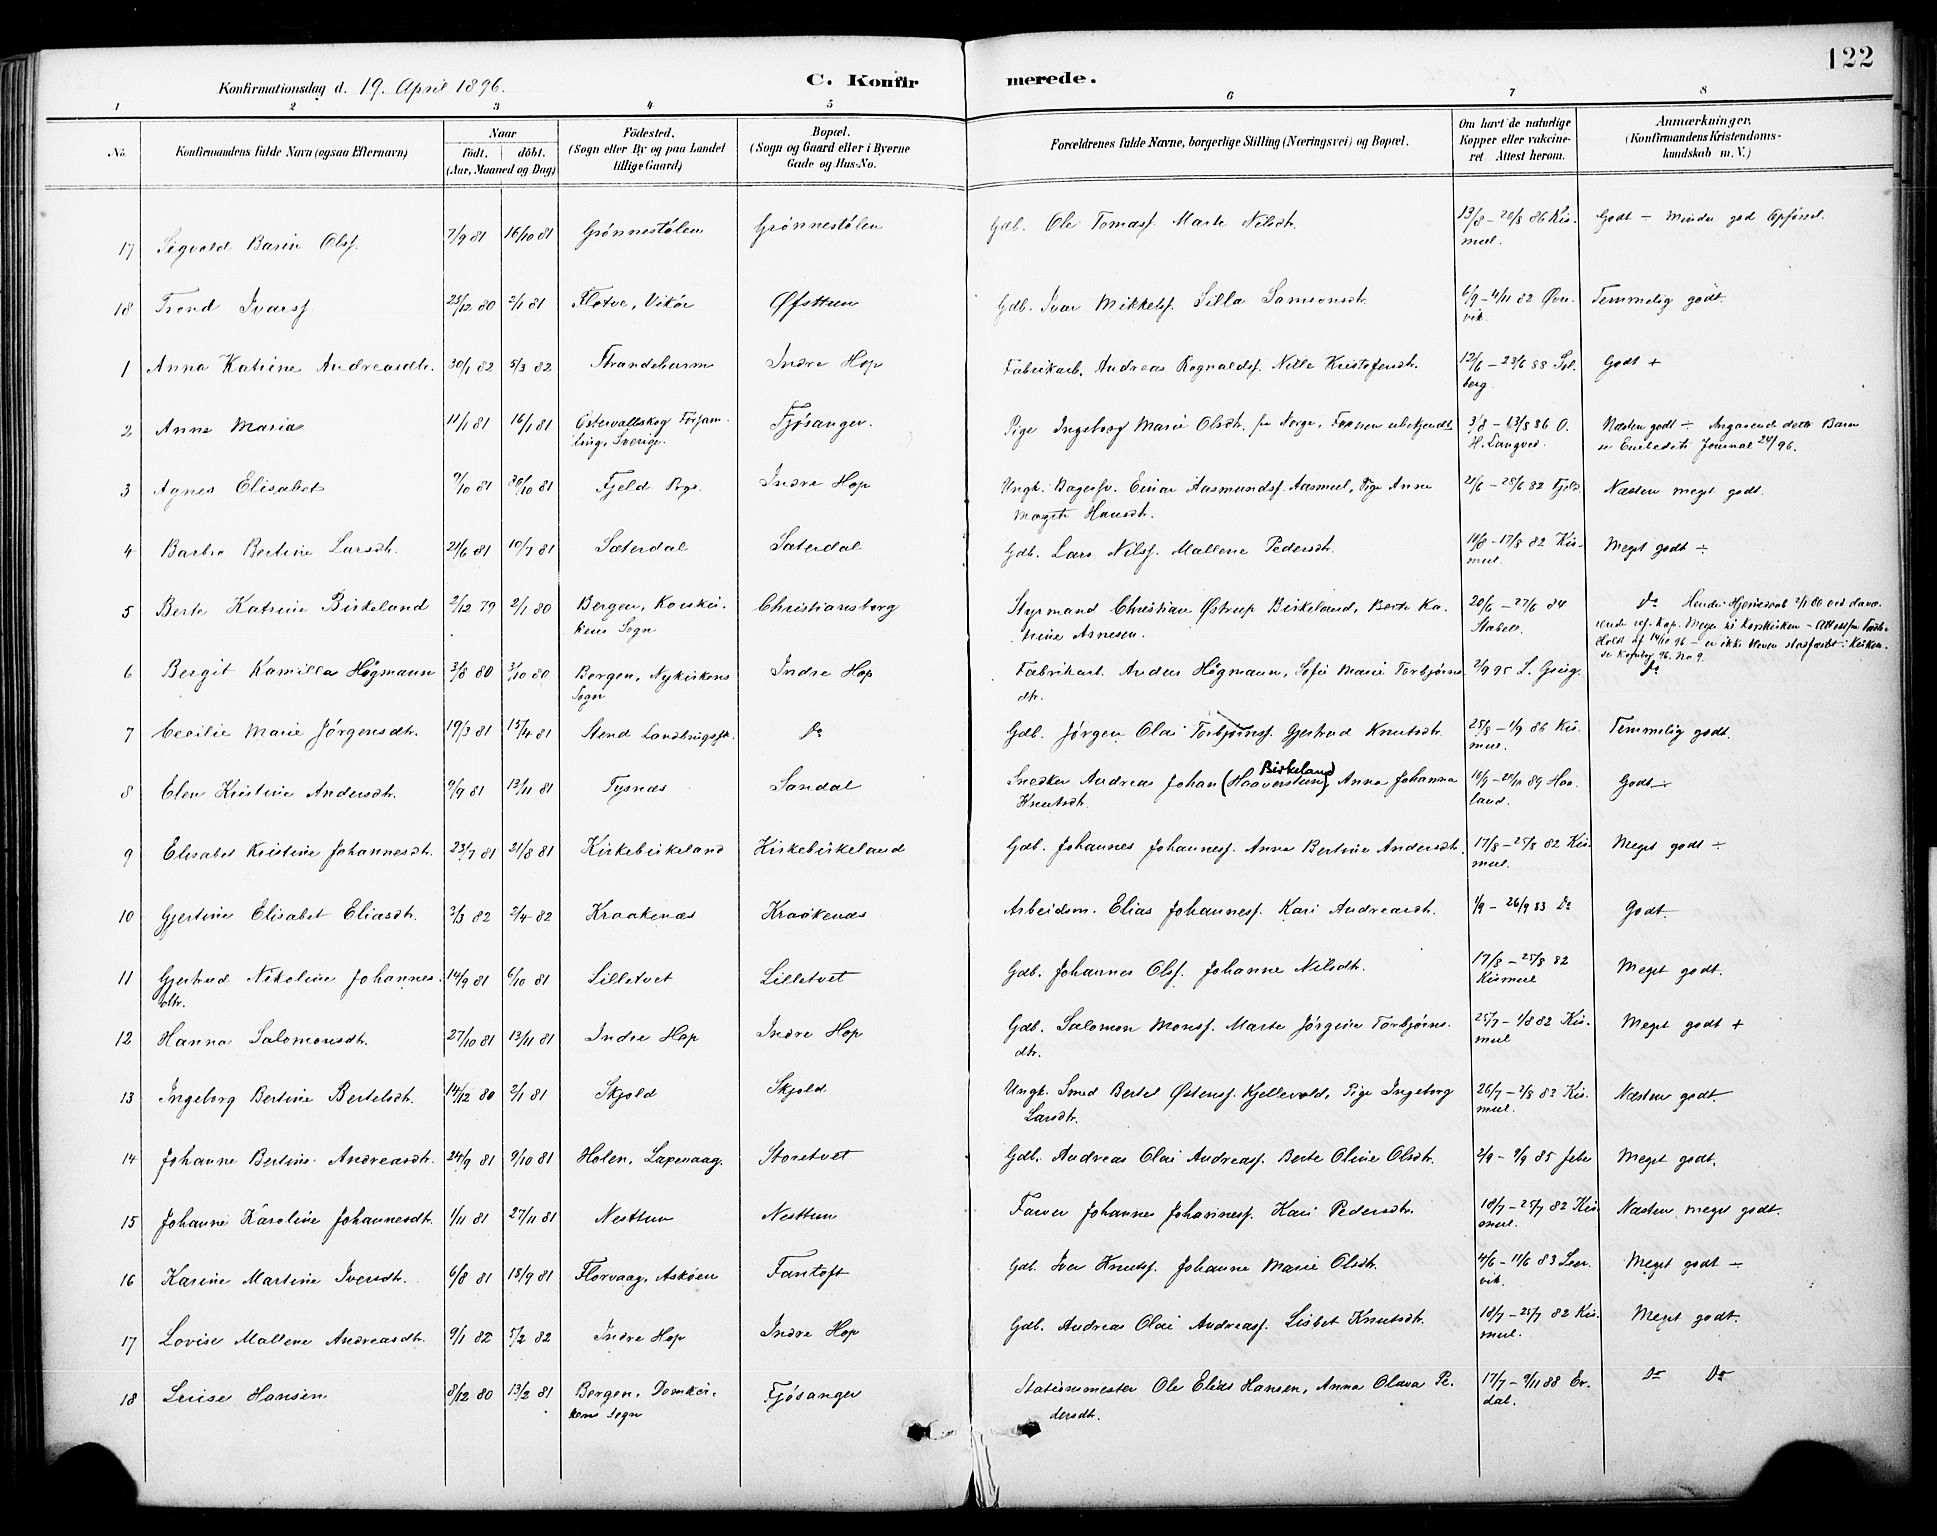 122
Konfirmationsdag d. 19. April 1896.
C. Konfirmerede.
1 2 3 4 5 6 7 8
No. Konfirmandens fulde Navn (ogsaa Efternavn) Naar födt. döbt. (Aar, Maaned og Dag) Födested. (Sogn eller By og paa Landet tillige Gaard) Bopæl. (Sogn og Gaard eller i Byerne Gade og Hus-No. Forældrenes fulde Navne, borgerlige Stilling (Næringsvei) og Bopæl. Om havt de naturlige Kopper eller vakcineret Attest herom. Anmærkninger. (Konfirmandens Kristendomskundskab m. V.)
17 Sigvald Barin Olsf. 7/9 81 16/10 81 Grönnestölen Grönnestölen Gdb. Ole Tomasf. Marte Nilsdtr. 13/8 - 20/8 86 Kismul. Godt - Mindre god Opförsel.
18 Trond Ivarsf. 23/12 80 2/1 81 Flotve, Vikör Øfsttun Gdb. Ivar Mikkelsf. Silla Samsonsdtr. 6/9 - 4/11 82 Temmelig godt.
1 Anna Katrine Andreasdtr. 30/1 82 5/3 82 Strandebarm Indre Hop Fabrikarb. Andreas Rognaldsf. Nille Kristofersdtr. 12/6 - 23/6 88 Solberg. Godt +
2 Anne Maria 11/1 81 16/1 81 Östervallskog Sverige. Fjösanger. Pige Ingeborg Marie Olsdtr. fra Norge, Faderen ubekjendt 3/8 - 13/8 86 O. H. Langved. Næsten godt ÷ Angaaende dette Barn se Embedets Journal 24/96.
3 Agnes Elisabet 9/10 81 30/10 81 Fjeld Prgj. Indre Hop Ungk. Bagersv. Einar Aasmundsf. Aasmul, Pige Anne Margete Hansdtr. 21/6 - 28/6 82 Fjeld Næsten meget godt.
4 Barbra Bertine Larsdtr. 21/6 81 10/7 81 Sæterdal Sæterdal Gdb. Lars Nilsf. Mallene Pedersdtr. 10/8 - 17/8 82 Kismul. Meget godt ÷
5 Berte Katrine Birkeland 2/12 79 2/1 80 Bergen, Korskirkens Sogn Christiansborg Styrmand Christian Østrup Birkeland, Berte Katrine Arnesen. 20/6 - 27/6 84 Stabell. Do
6 Bergit Kamilla Högmann 3/8 80 3/10 80 Bergen, Nykirkens Sogn Indre Hop Fabrikarb. Anders Högmann, Sofie Marie Torbjörnsdtr. 2/9 95 L. Do
7 Cecilie Marie Jörgensdtr. 19/3 81 15/4 81 Stend Landbrugssk. Do Gdb. Jörgen Olai Torbjörnsf. Gjertrud Knutsdtr. 25/8 - 1/9 86 Kismul. Temmelig godt.
8 Elen Kristine Andersdtr. 9/9 81 13/11 81 Tysnæs Sandal Snedker Andreas Johan (Haaverstun) Birkeland Anna Johanna Knutsdtr. 89 Haaland. Godt ÷
9 Elisabet Kristine Johannesdtr. 23/7 81 21/8 81 Kirkebirkeland Kirkebirkeland Gdb. Johannes Johannesf. Anna Bertine Andersdtr. 17/8 - 25/8 82 Kismul. Meget godt ÷
10 Gjertine Elisabet Eliasdtr. 2/3 82 2/4 82 Kraakenæs Kraakenæs Arbeidsm. Elias Johannesf. Kari Andreasdtr. 1/9 - 26/9 83 Do Godt.
11 Gjertrud Nikoline Johannesdtr. 14/9 81 6/10 81 Lilletvet Lilletvet Gdb. Johannes Olsf. Johanne Nilsdtr. 17/8 - 25/8 82 Kismul Meget godt.
12 Hanna Salomonsdtr. 27/10 81 13/11 81 Indre Hop Indre Hop Gdb. Salomon Monsf. Marte Jörgine Torbjörnsdtr. 25/7 - 1/8 82 Kismul Meget godt +
13 Ingeborg Bertine Bertelsdtr. 14/12 80 2/1 81 Skjold Skjold Ungk. Smed Bertel Østensf. Kjellevold, Pige Ingeborg Larsdtr. 26/7 - 2/8 83 Kismul. Næsten godt.
14 Johanne Bertine Andreasdtr. 24/9 81 9/10 81 Holen, Laxevaag. Storetvet Gdb. Andreas Olai Andreasf. Berte Oline Olsdtr. 2/9 - 9/9 85 Meget godt.
15 Johanne Karoline Johannesdtr. 1/11 81 27/11 81 Nesttun Nesttun Farver Johannes Johannesf. Kari Pedersdtr. 18/7 - 25/7 82 Kismul. Næsten meget godt.
16 Karine Martine Iversdtr. 6/8 81 18/9 81 Florvaag, Asköen Fantoft Gdb. Iver Knutsf. Johanne Marie Olsdtr. 4/6 - 11/6 83 Leervik. Meget godt ÷
17 Lovise Mallene Andreasdtr. 9/1 82 5/2 82 Indre Hop Indre Hop Gdb. Andreas Olai Andreasf. Lisbet Knutsdtr. 18/7 - 25/7 82 Kismul. Meget godt.
18 Lruise Hansen 8/12 80 13/2 81 Bergen, Domkirkens Sogn Fjösanger Stationsmester Ole Elias Hansen, Anna Olava Pedersdtr. 17/7 - 9/11 88 Do Do